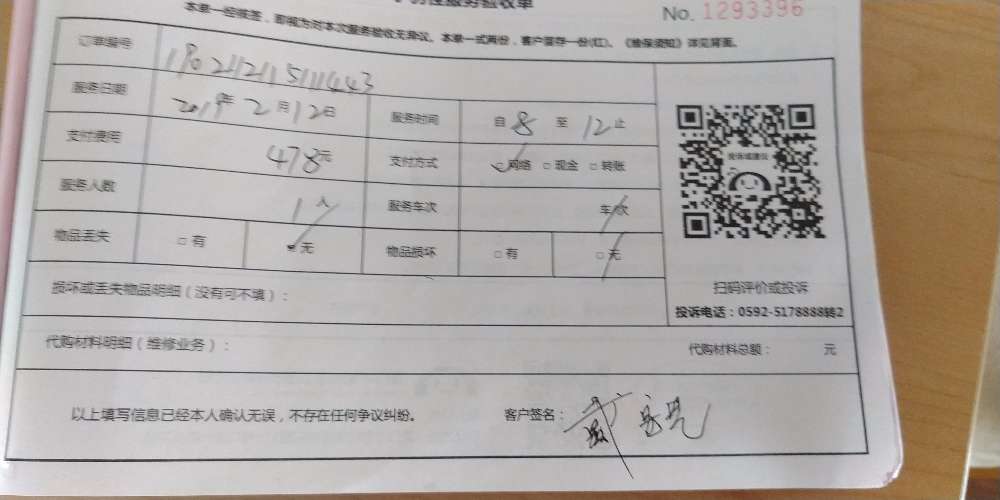 性服务验收单
No. 1293396
本单一经效签，即视为对本次服务验收无异议。本单一式两份，客户留存一份(红)。《维保须知》详见背面。
订单编号
服务日期 2019年 2月12日 服务时间 自8至12止
支付费用 478元 支付方式 网络 □现金 □转账
服务人数 1人 服务车次 车/次
物品丢失 □有 无 物品损坏 □有 □无
投诉或建议
扫码评价或投诉
投诉电话：0592-5178888转2
损坏或丢失物品明细（没有可不填）：
代购材料明细（维修业务）： 代购材料总额： 元
以上填写信息已经本人确认无误，不存在任何争议纠纷。 客户签名：